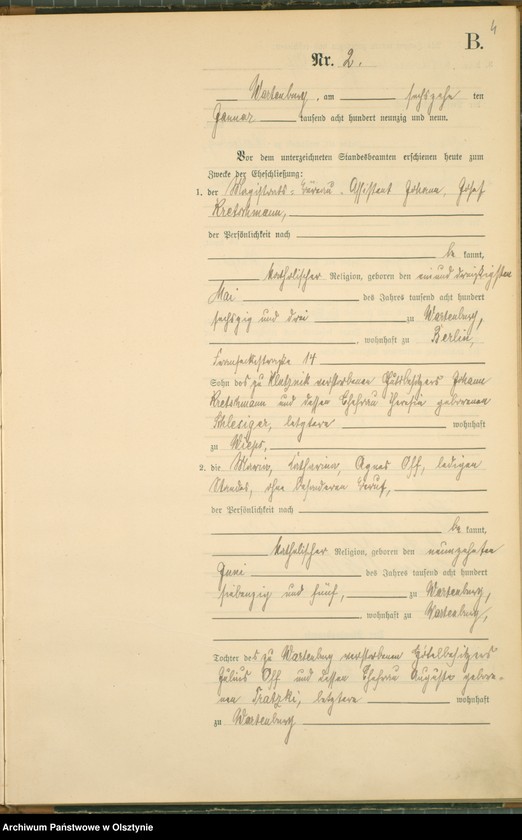 4
B.
Nr. 2.
Wartenburg, am sechszehn ten
Januar tausend acht hundert neunzig und neun.
Vor dem unterzeichneten Standesbeamten erschienen heute zum
Zwecke der Eheschließung:
1. der Magistrats-Büreau-Assistent Johann, Josef
Kretschmann,
der Persönlichkeit nach
be kannt,
katholischer Religion, geboren den ein und dreißigsten
Mai des Jahres tausend acht hundert
sechszig und drei zu Wartenburg,
, wohnhaft zu Berlin,
14
Sohn des zu verstorbenen Johann
Kretschmann und dessen Ehefrau geborenen
Schlesiger, letztere wohnhaft
zu
2. die Maria, Katharina, Agnes Off, ledigen
Standes, ohne besonderen Beruf,
der Persönlichkeit nach
be kannt,
katholischer Religion, geboren den neunzehnten
Juni des Jahres tausend acht hundert
siebenzig und fünf, zu Wartenburg,
, wohnhaft zu Wartenburg,
Tochter des zu Wartenburg verstorbenen Hôtelbesitzers
Julius Off und dessen Ehefrau Auguste gebore-
nen letztere wohnhaft
zu Wartenburg
Archiwum Państwowe w Olsztynie